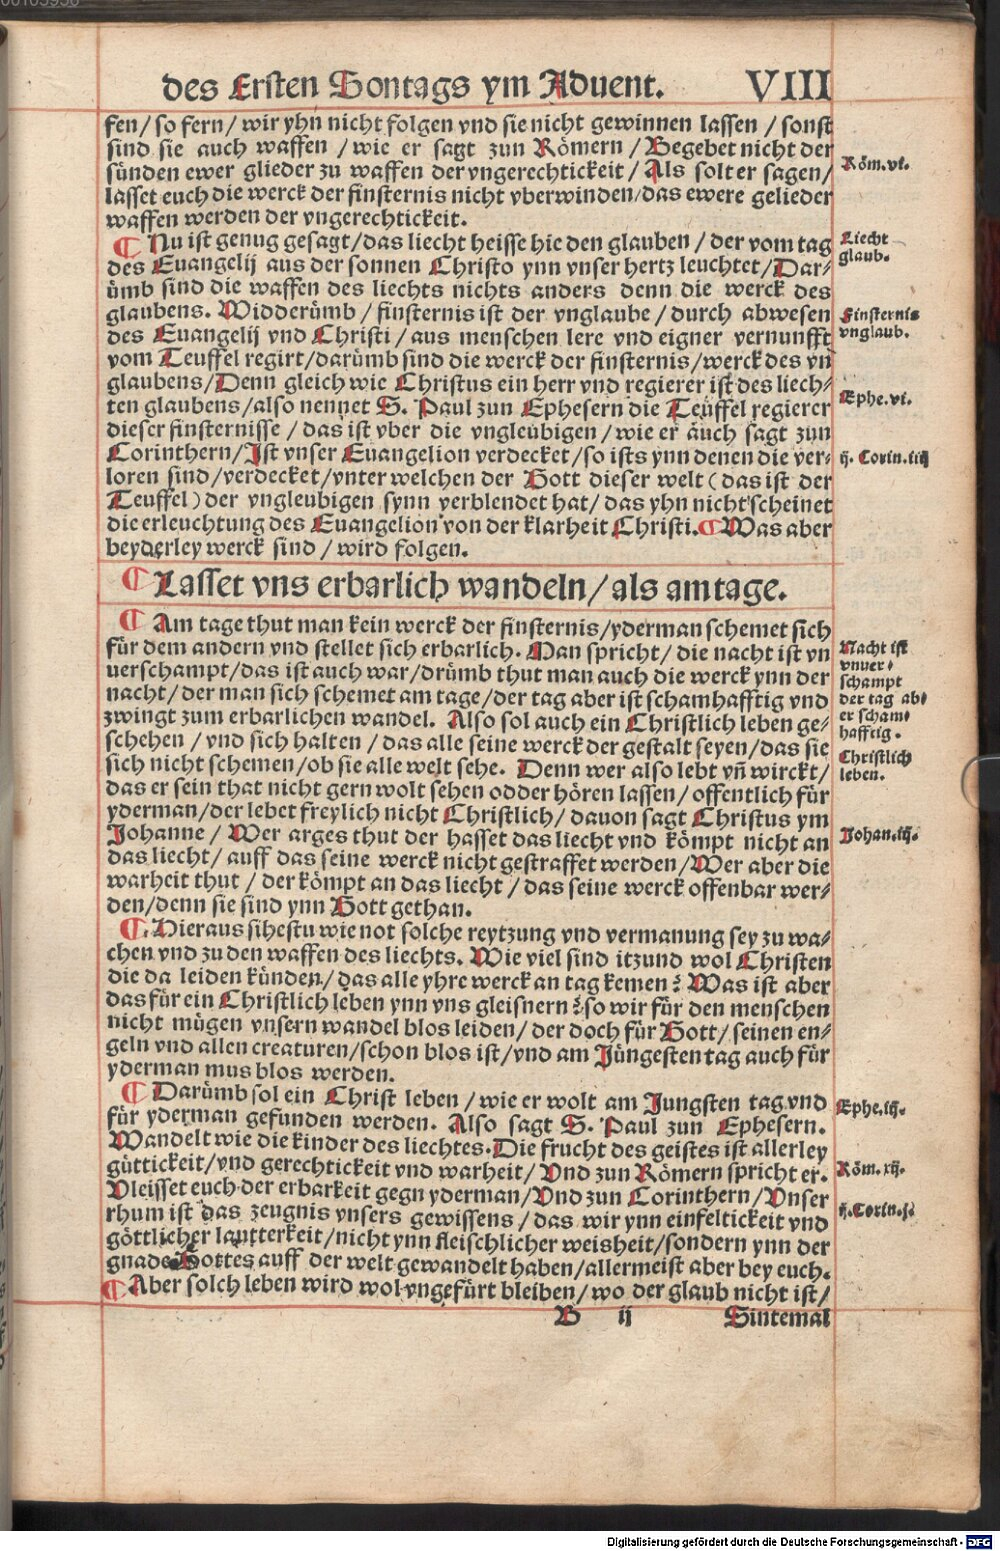 des Ersten Sontags ym Aduent. VIII
fen/ so fern/ wir yhn nicht folgen vnd sie nicht gewinnen lassen / sonst
sind sie auch waffen / wie er sagt zun Römern / Begebet nicht der
sünden ewer glieder zu waffen der vngerechtickeit / Als solt er sagen/
lasset euch die werck der finsternis nicht vberwinden/das ewere gelieder
waffen werden der vngerechtickeit.
Röm.vi.
¶ Nu ist genug gesagt/das liecht heisse hie den glauben / der vom tag
des Euangelij aus der sonnen Christo ynn vnser hertz leuchtet/Dar-
ümb sind die waffen des liechts nichts anders denn die werck des
glaubens. Widderümb / finsternis ist der vnglaube / durch abwesen
des Euangelij vnd Christi / aus menschen lere vnd eigner vernunfft
vom Teuffel regirt/darümb sind die werck der finsternis/werck des vn
glaubens/Denn gleich wie Christus ein herr vnd regierer ist des liech-
ten glaubens/also nennet S. Paul zun Ephesern die Teüffel regierer
dieser finsternisse / das ist vber die vngleübigen / wie er auch sagt zun
Corinthern/Ist vnser Euangelion verdecket/so ists ynn denen die ver-
loren sind/verdecket/vnter welchen der Gott dieser welt ( das ist der
Teuffel ) der vngleubigen synn verblendet hat/ das yhn nicht scheinet
die erleuchtung des Euangelion von der klarheit Christi. ¶ Was aber
beyderley werck sind / wird folgen.
Liecht
glaub.
Finsternis
vnglaub.
Ephe.vi.
ij. Corin.iiij
¶ Lasset vns erbarlich wandeln/als am tage.
¶ Am tage thut man kein werck der finsternis/yderman schemet sich
für dem andern vnd stellet sich erbarlich. Man spricht/ die nacht ist vn
uerschampt/das ist auch war/drümb thut man auch die werck ynn der
nacht/der man sich schemet am tage/der tag aber ist schamhafftig vnd
zwingt zum erbarlichen wandel. Also sol auch ein Christlich leben ge-
schehen / vnd sich halten / das alle seine werck der gestalt seyen/das sie
sich nicht schemen/ob sie alle welt sehe. Denn wer also lebt vñ wirckt/
das er sein that nicht gern wolt sehen odder hören lassen/ offentlich für
yderman/der lebet freylich nicht Christlich/ dauon sagt Christus ym
Johanne / Wer arges thut der hasset das liecht vnd kömpt nicht an
das liecht/ auff das seine werck nicht gestraffet werden/Wer aber die
warheit thut / der kömpt an das liecht / das seine werck offenbar wer-
den/denn sie sind ynn Gott gethan.
Nacht ist
vnuer-
schampt
der tag ab-
er scham-
hafftig.
Christlich
leben.
Johan.iij.
¶ Hieraus sihestu wie not solche reytzung vnd vermanung sey zu wa-
chen vnd zu den waffen des liechts. Wie viel sind itzund wol Christen
die da leiden künden/ das alle yhre werck an tag kemen? Was ist aber
das für ein Christlich leben ynn vns gleisnern? so wir für den menschen
nicht mügen vnsern wandel blos leiden/ der doch für Gott/ seinen en-
geln vnd allen creaturen/schon blos ist/vnd am Jüngesten tag auch für
yderman mus blos werden.
¶ Darümb sol ein Christ leben / wie er wolt am Jungsten tag vnd
für yderman gefunden werden. Also sagt S. Paul zun Ephesern.
Wandelt wie die kinder des liechtes. Die frucht des geistes ist allerley
güttickeit/vnd gerechtickeit vnd warheit/ Vnd zun Römern spricht er.
Vleisset euch der erbarkeit gegn yderman/Vnd zun Corinthern/Vnser
rhum ist das zeugnis vnsers gewissens / das wir ynn einfeltickeit vnd
göttlicher lautterkeit/nicht ynn fleischlicher weisheit/sondern ynn der
gnade Gottes auff der welt gewandelt haben/allermeist aber bey euch.
¶ Aber solch leben wird wol vngefürt bleiben/ wo der glaub nicht ist/
Ephe.iij.
Röm.xij.
ij.Corin.j.
B ij Sintemal
Digitalisierung gefördert durch die Deutsche Forschungsgemeinschaft - DFG